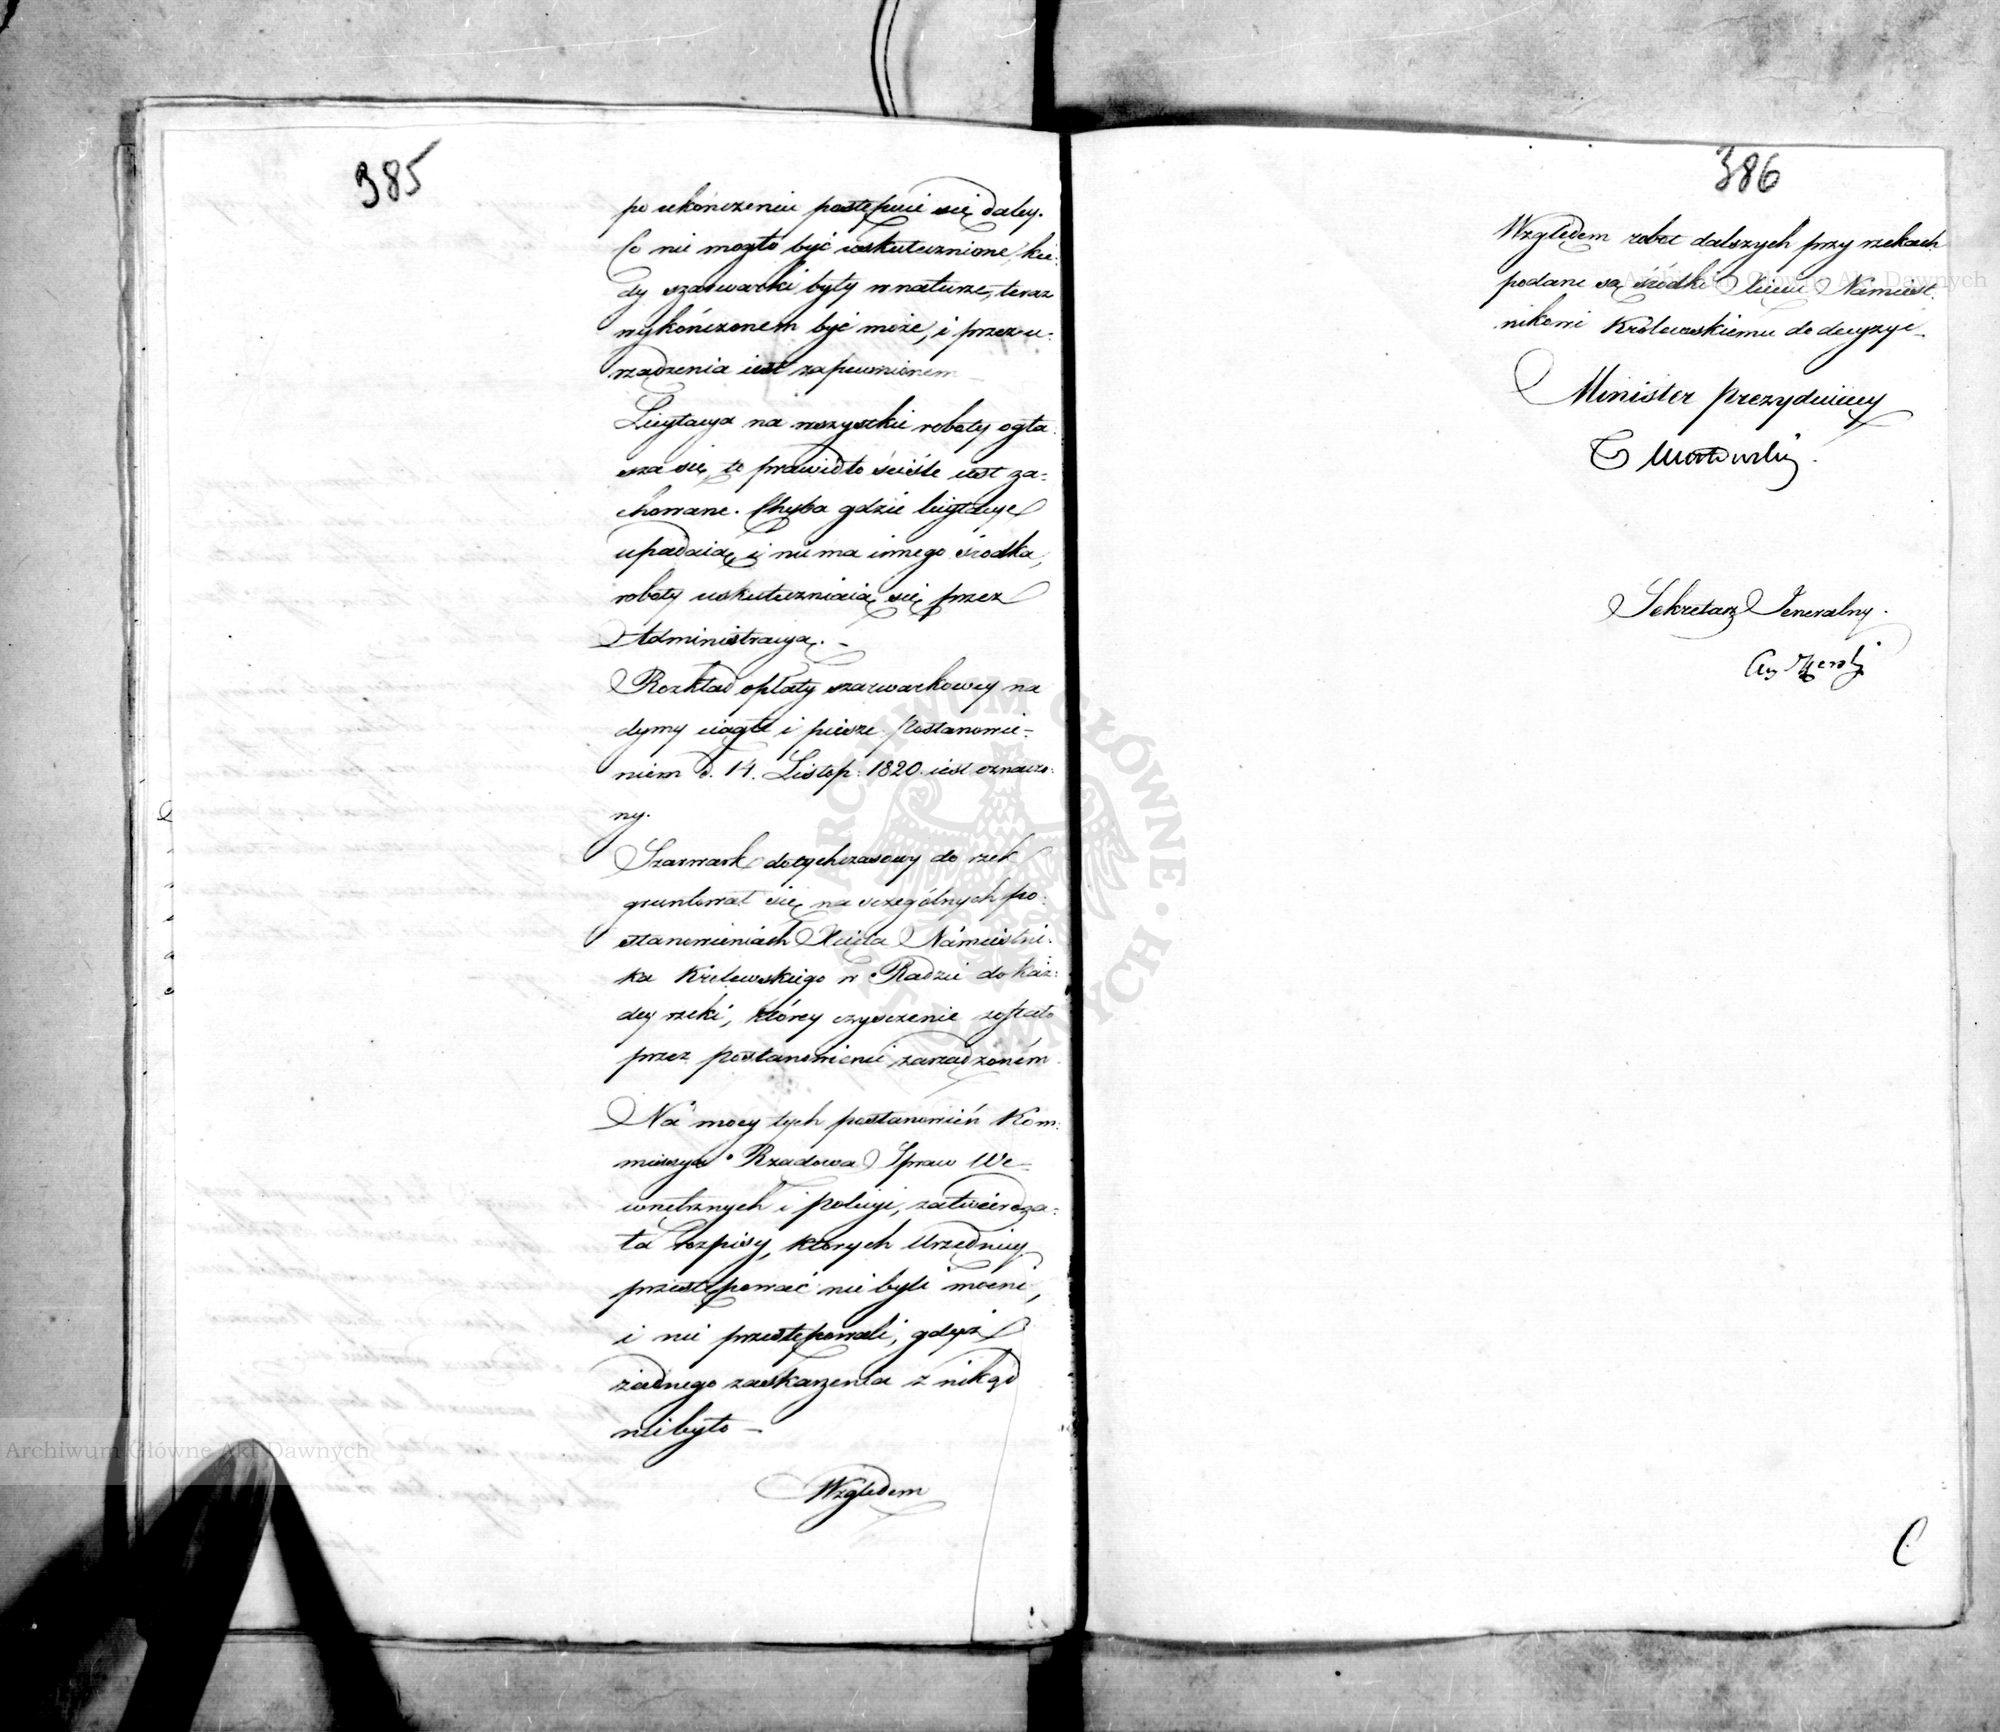 385
po ukończeniu postępuie się daley.
Co nie mogło być uskutecznione, kie-
dy szarwarki były w naturze, teraz
wykończonem być może, i przez u-
rządzenia iest zapewnionem
Licytacya na wszystkie roboty ogła-
sza się, to prawidło ściśle iest za-
chowane. Chyba gdzie licytacye
upadaią, i nie ma innego środka,
roboty uskuteczniaią się przez
Administracyą. –
Rozkład opłaty szarwarkowey na
dymy ciągłe i piesze Postanowie-
niem d. 14. Listop: 1820. iest oznaczo-
ny.
Szarwark dotychczasowy do rzek
gruntował się na sczególnych po-
stanowieniach Xięcia Námiestni-
ka Królewskiego w Radzie do każ-
dey rzeki, którey czysczenie zostało
przez postanowienie zarządzoném
Na mocy tych postanowień Kom-
missya Rządowa Spraw We-
wnętrznych i Policyi, zatwierdza-
ła rozpisy, których Urzędnicy
przestępować nie byli mocni,
i nie przestępowali, gdyż
żadnego zaskarżenia z nikąd
nie było –
Względem
386
Względem robot dalszych przy rzekach
podane są śrzodki Xięciu Námiest-
nikowi Królewskiemu do decyzyi –
Minister Prezyduiący
T Mostowski
Sekretarz Jeneralny.
C
Archiwum Główne Akt Dawnych
Archiwum Główne Akt Dawnych
ARCHIWUM GŁÓWNE AKT DAWNYCH